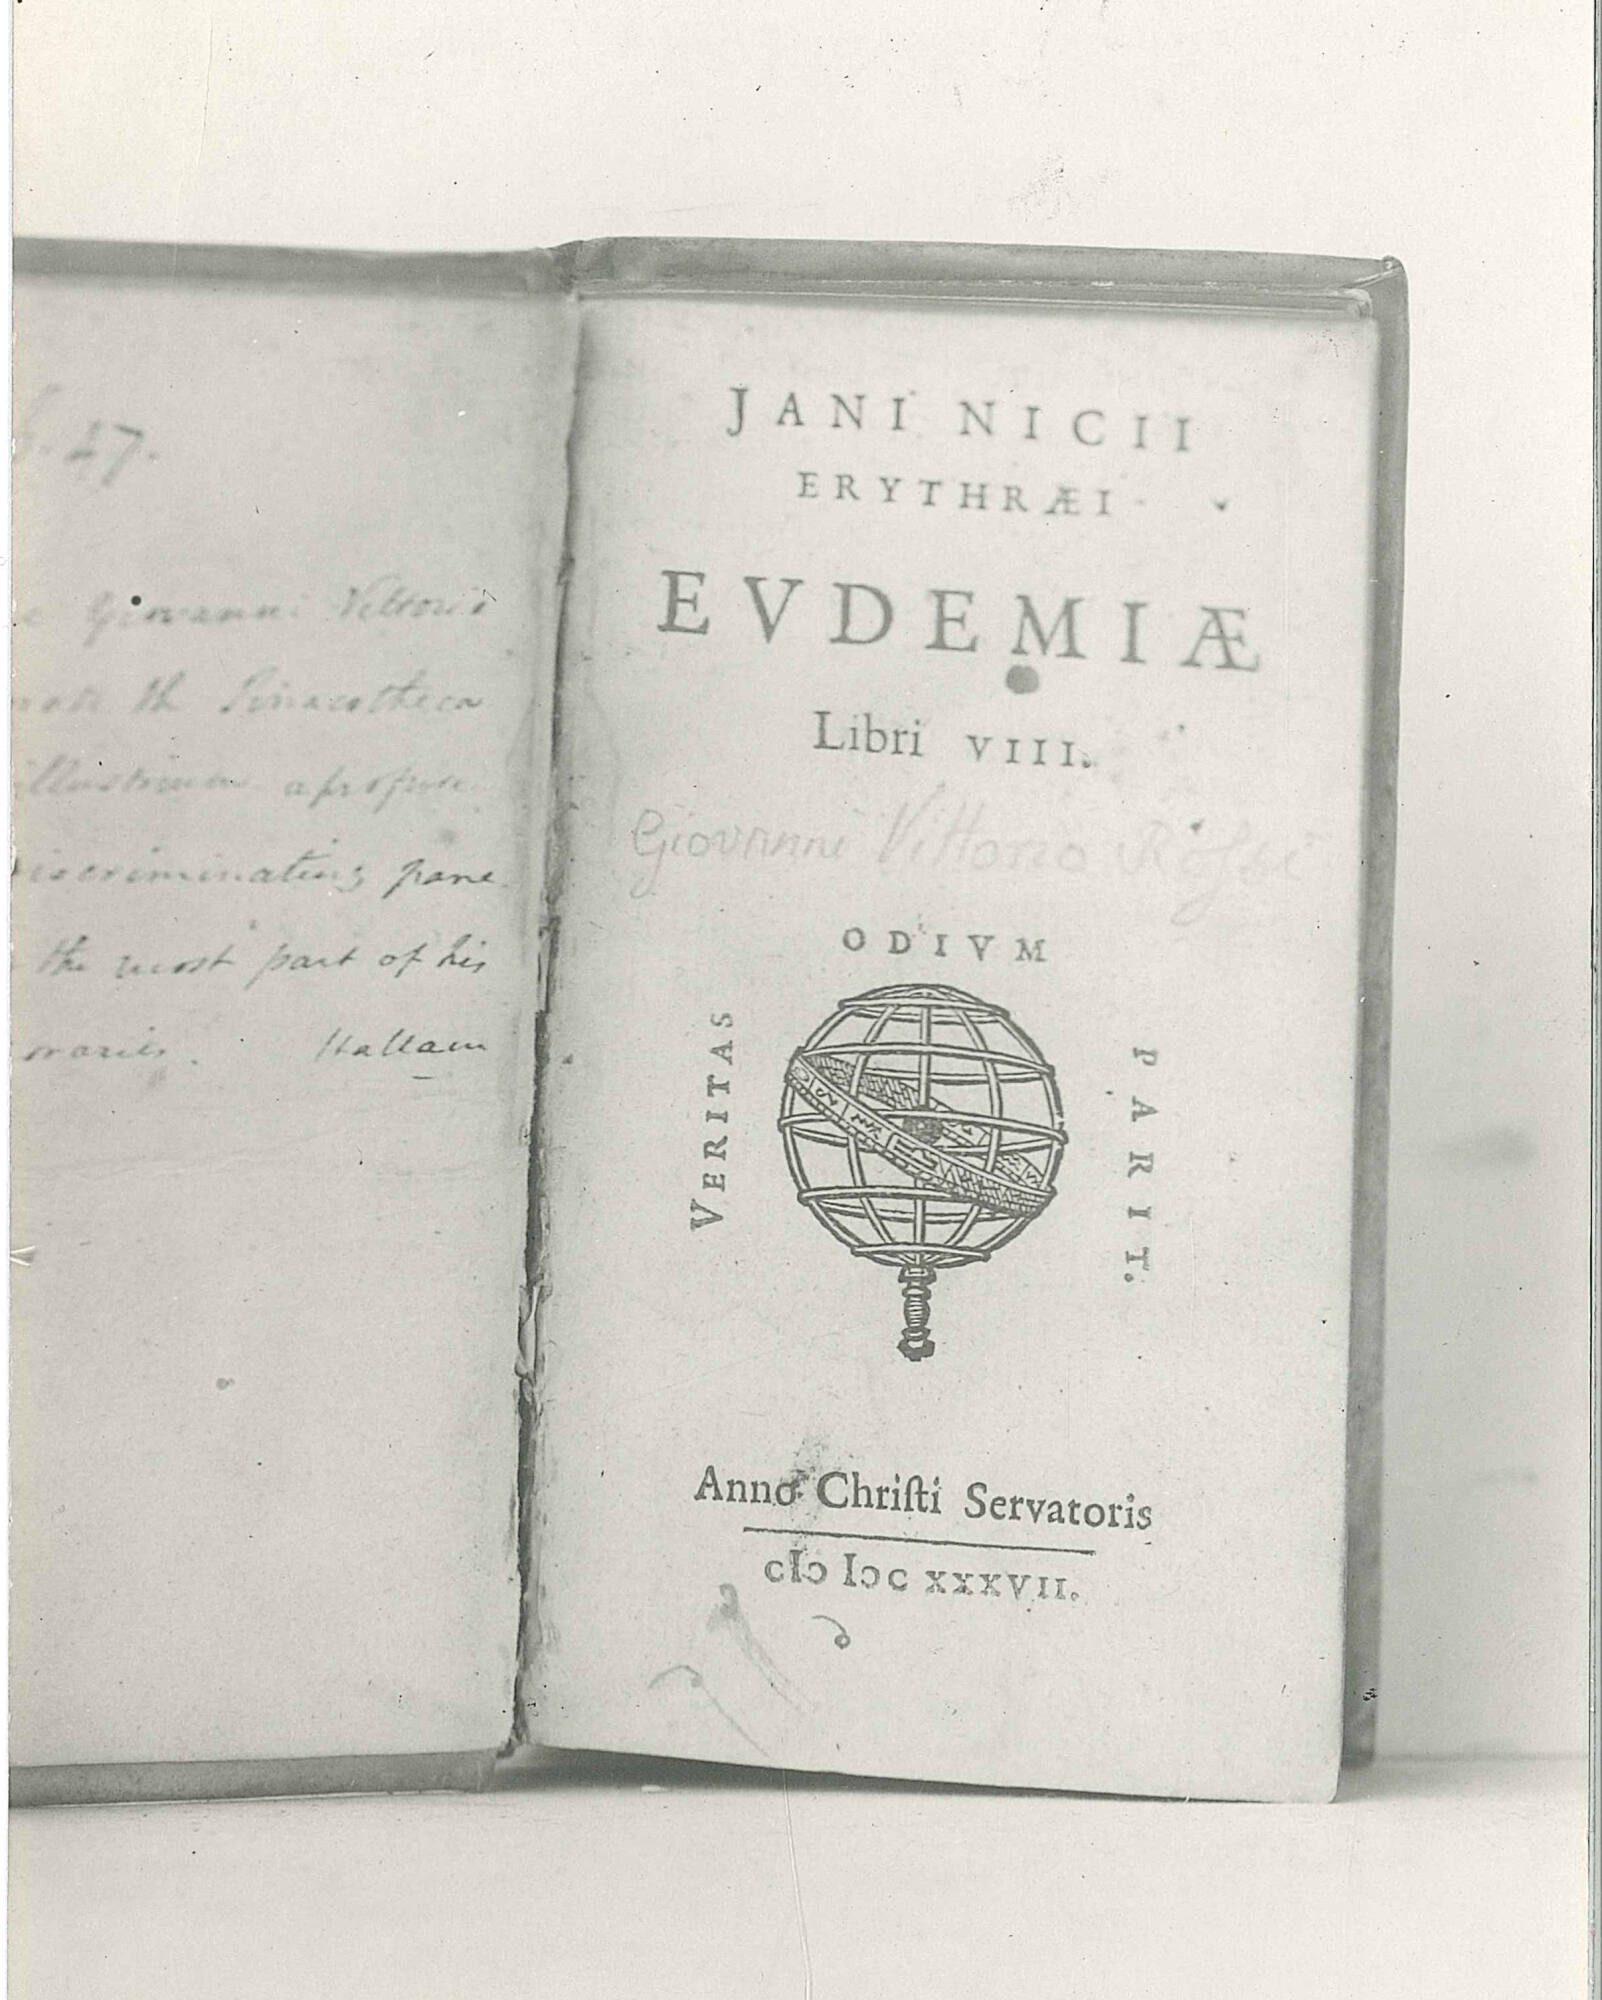 . 47.
Giovanni Vittorio
Pinacotheca
discriminating pane
the most part of his
Hallam
JANI NICII
ERYTHRÆI
EVDEMIÆ
Libri VIII.
Giovanni Vittorio Rossi
ODIVM
VERITAS
PARIT.
Anno Chriſti Servatoris
cIↄ Iↄc XXXVII.